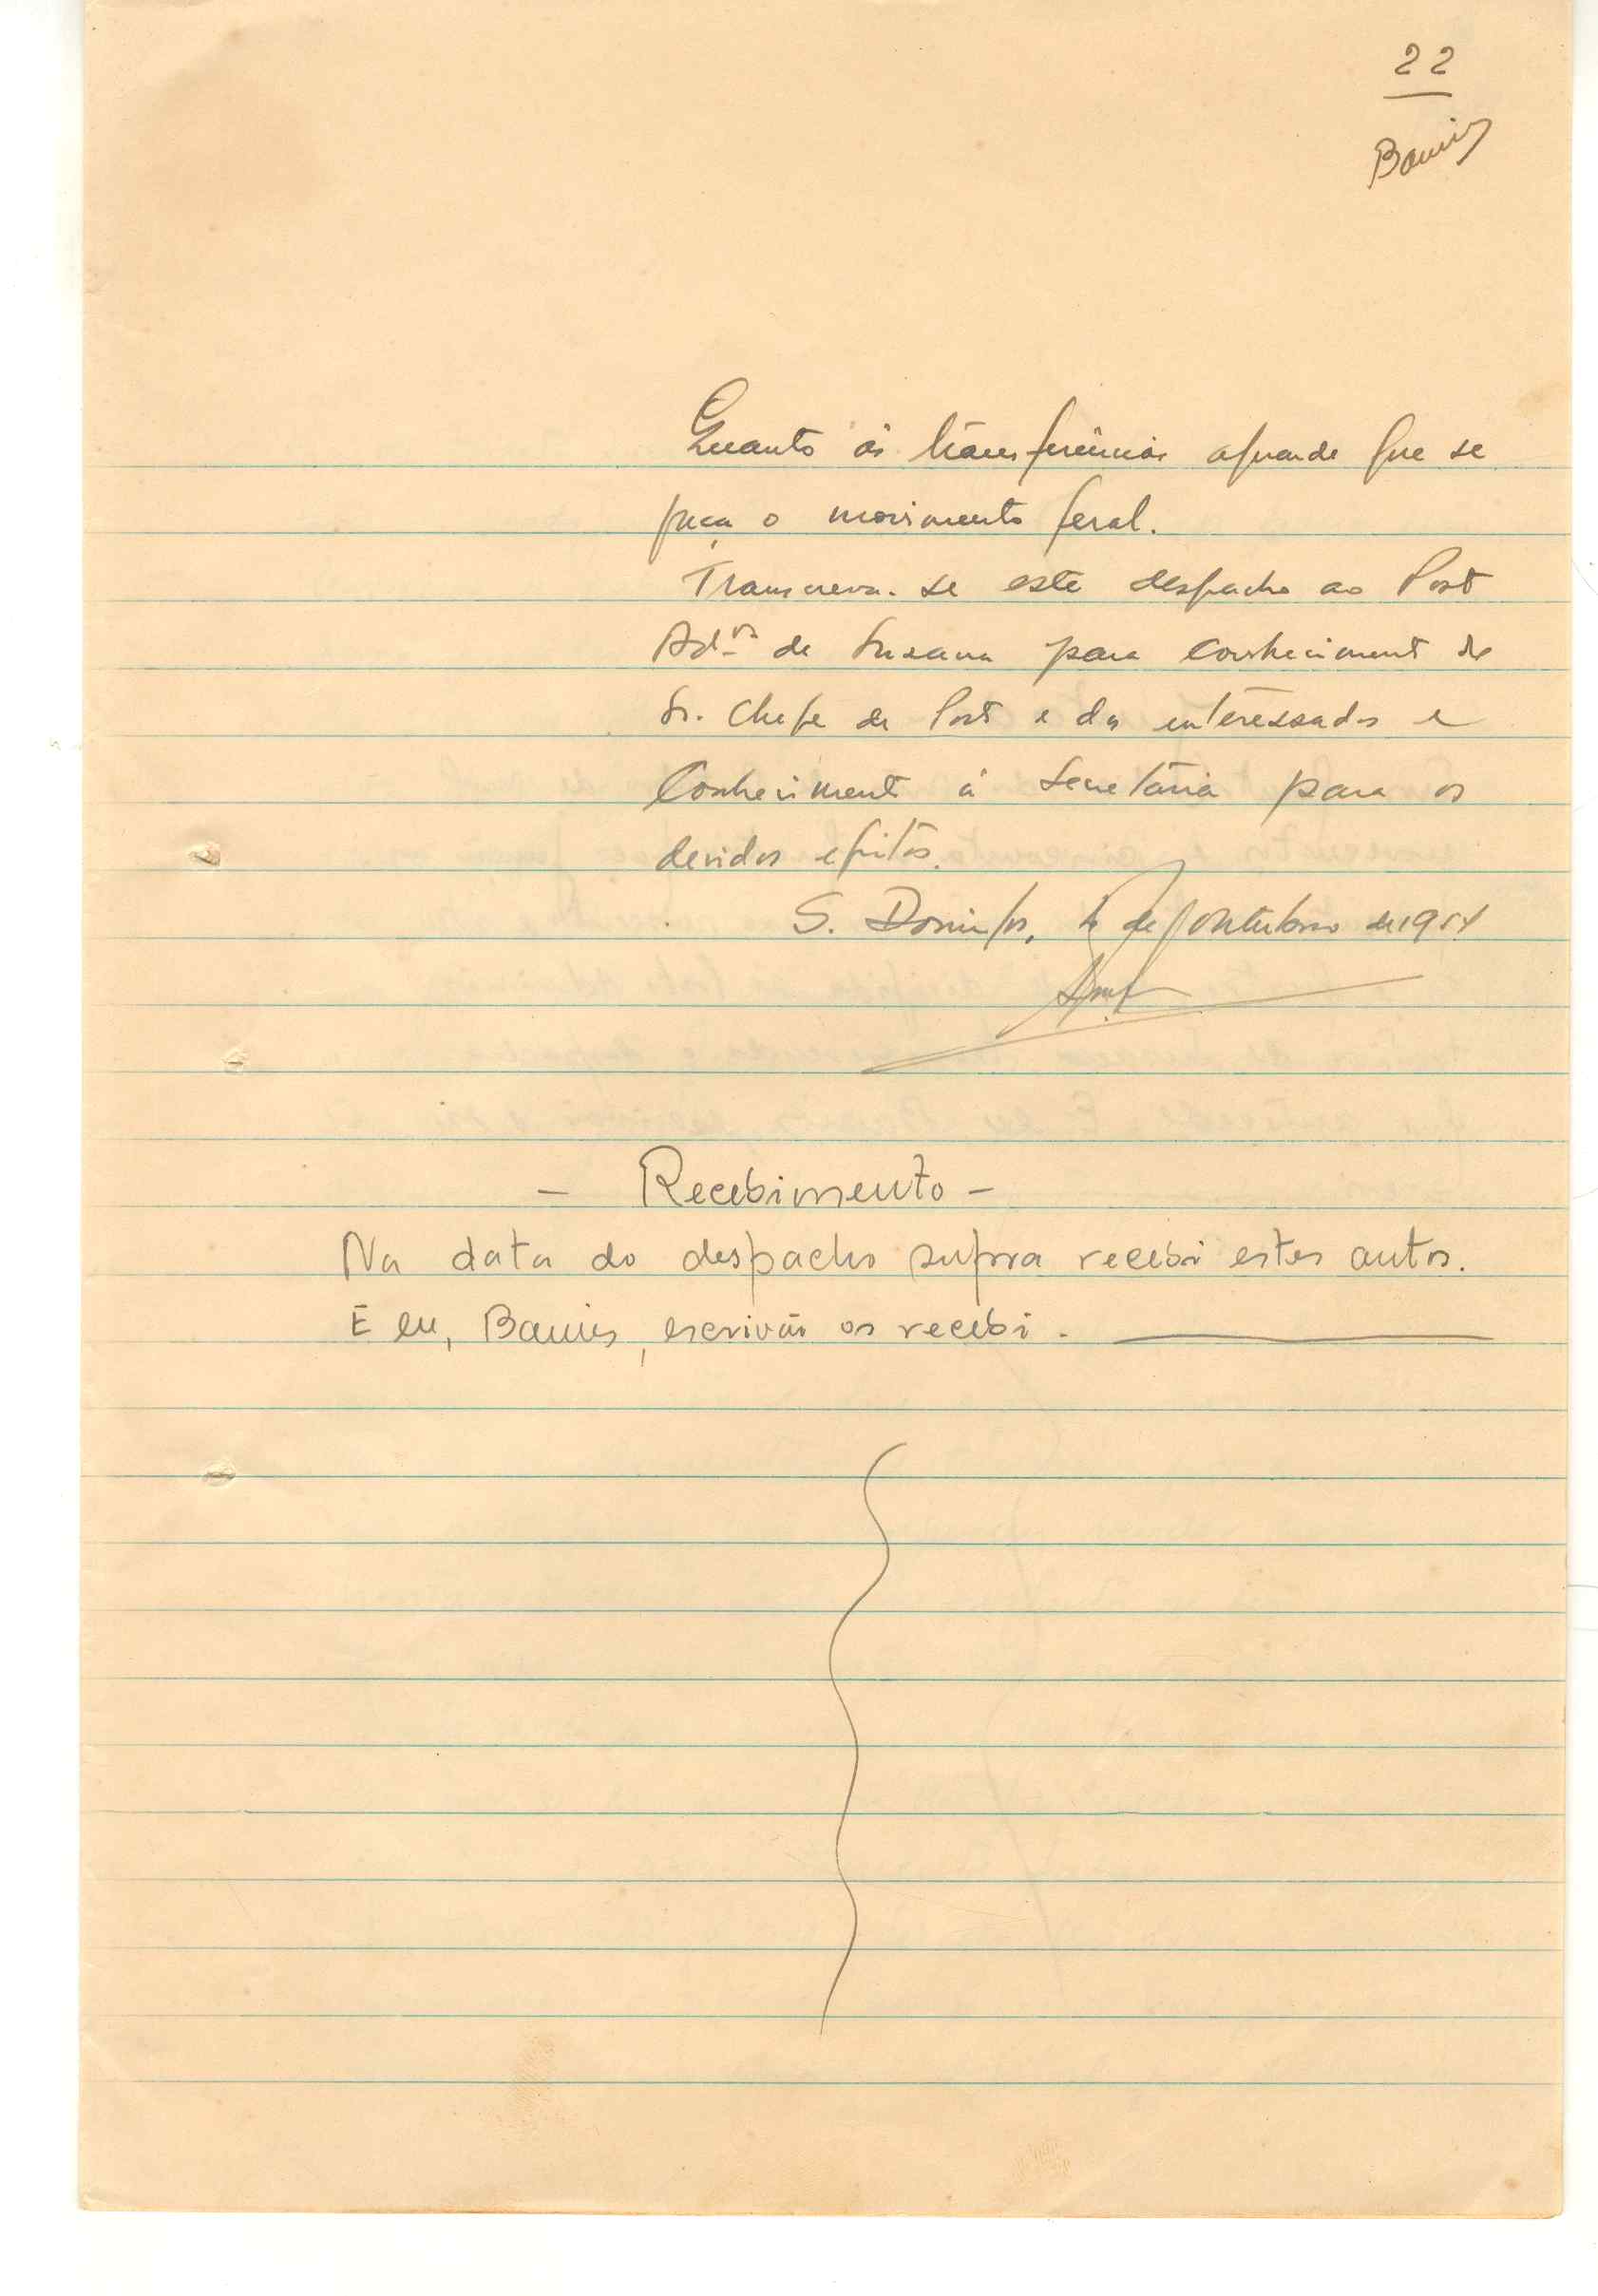 22
Quanto ás transferências aguarde que se
faça o movimento geral.
Transcreva-se este despacho ao Post
Ad.vo de Susana para conheciment do
Sr. Chefe de Post e dos interessados e
Conheciment á Secretária para os
devidos efeitos.
S. Domingos, de Outubro de 195
- Recebimento -
Na data do despacho supra recebi estes autos.
E eu, escrivão os recebi.